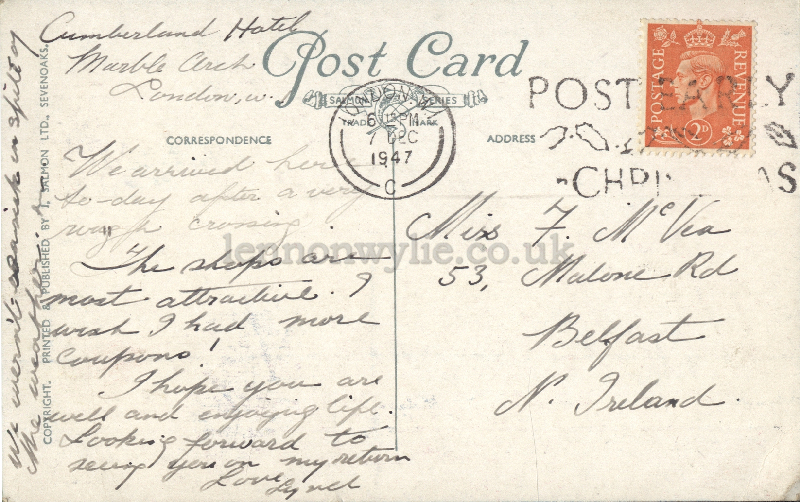 Cumberland Hotel
Marble Arch
London, W.
Post Card
SALMON SERIES
TRADE MARK
CORRESPONDENCE
ADDRESS
We arrived here
to-day after a very
rough crossing
The shops are
most attractive. I
wish I had more
coupons!
I hope you are
well and enjoying life.
Looking forward to
seeing you on my return
Love
We weren't seasick in spite of
the weather
COPYRIGHT. PRINTED & PUBLISHED BY J. SALMON LTD., SEVENOAKS.
LONDON. W.1
6 15 PM
7 DEC
1947
C
POST EARLY
CHRI AS
POSTAGE
REVENUE
2D
Miss F. McVea
53, Malone Rd
Belfast
N. Ireland.
lennonwylie.co.uk